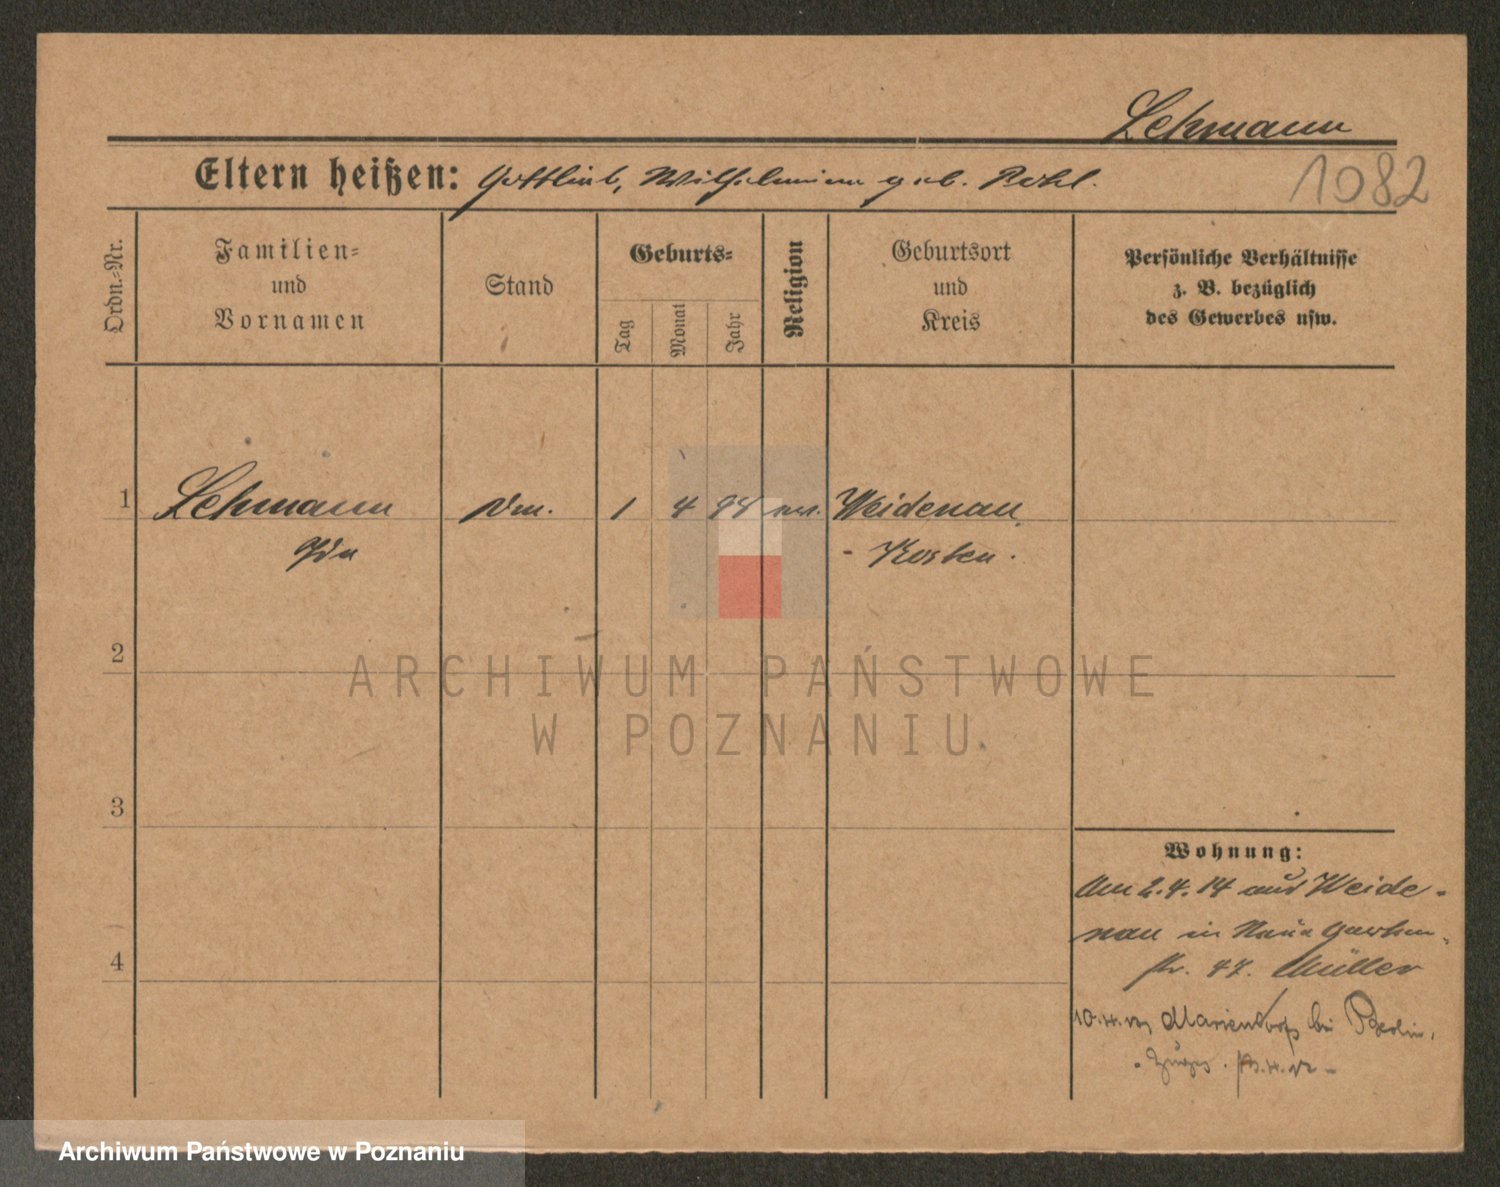 Lehmann
1082
Eltern heißen: Gottlieb, Wilhelmine geb. Pohl.
Ordn.=Nr.
Familien=
und
Vornamen
Stand
Geburts=
Tag
Monat
Jahr
Religion
Geburtsort
und
Kreis
Persönliche Verhältnisse
z. B. bezüglich
des Gewerbes usw.
1 Lehmann 1 4 94 Weidenau
Ida - Kosten.
2
ARCHIWUM PAŃSTWOWE
W POZNANIU
3
Wohnung:
Am 2.4.14 aus Weide-
nau in Garten-
str. 47. Müller
Mariendorf bei Berlin,
4
Archiwum Państwowe w Poznaniu